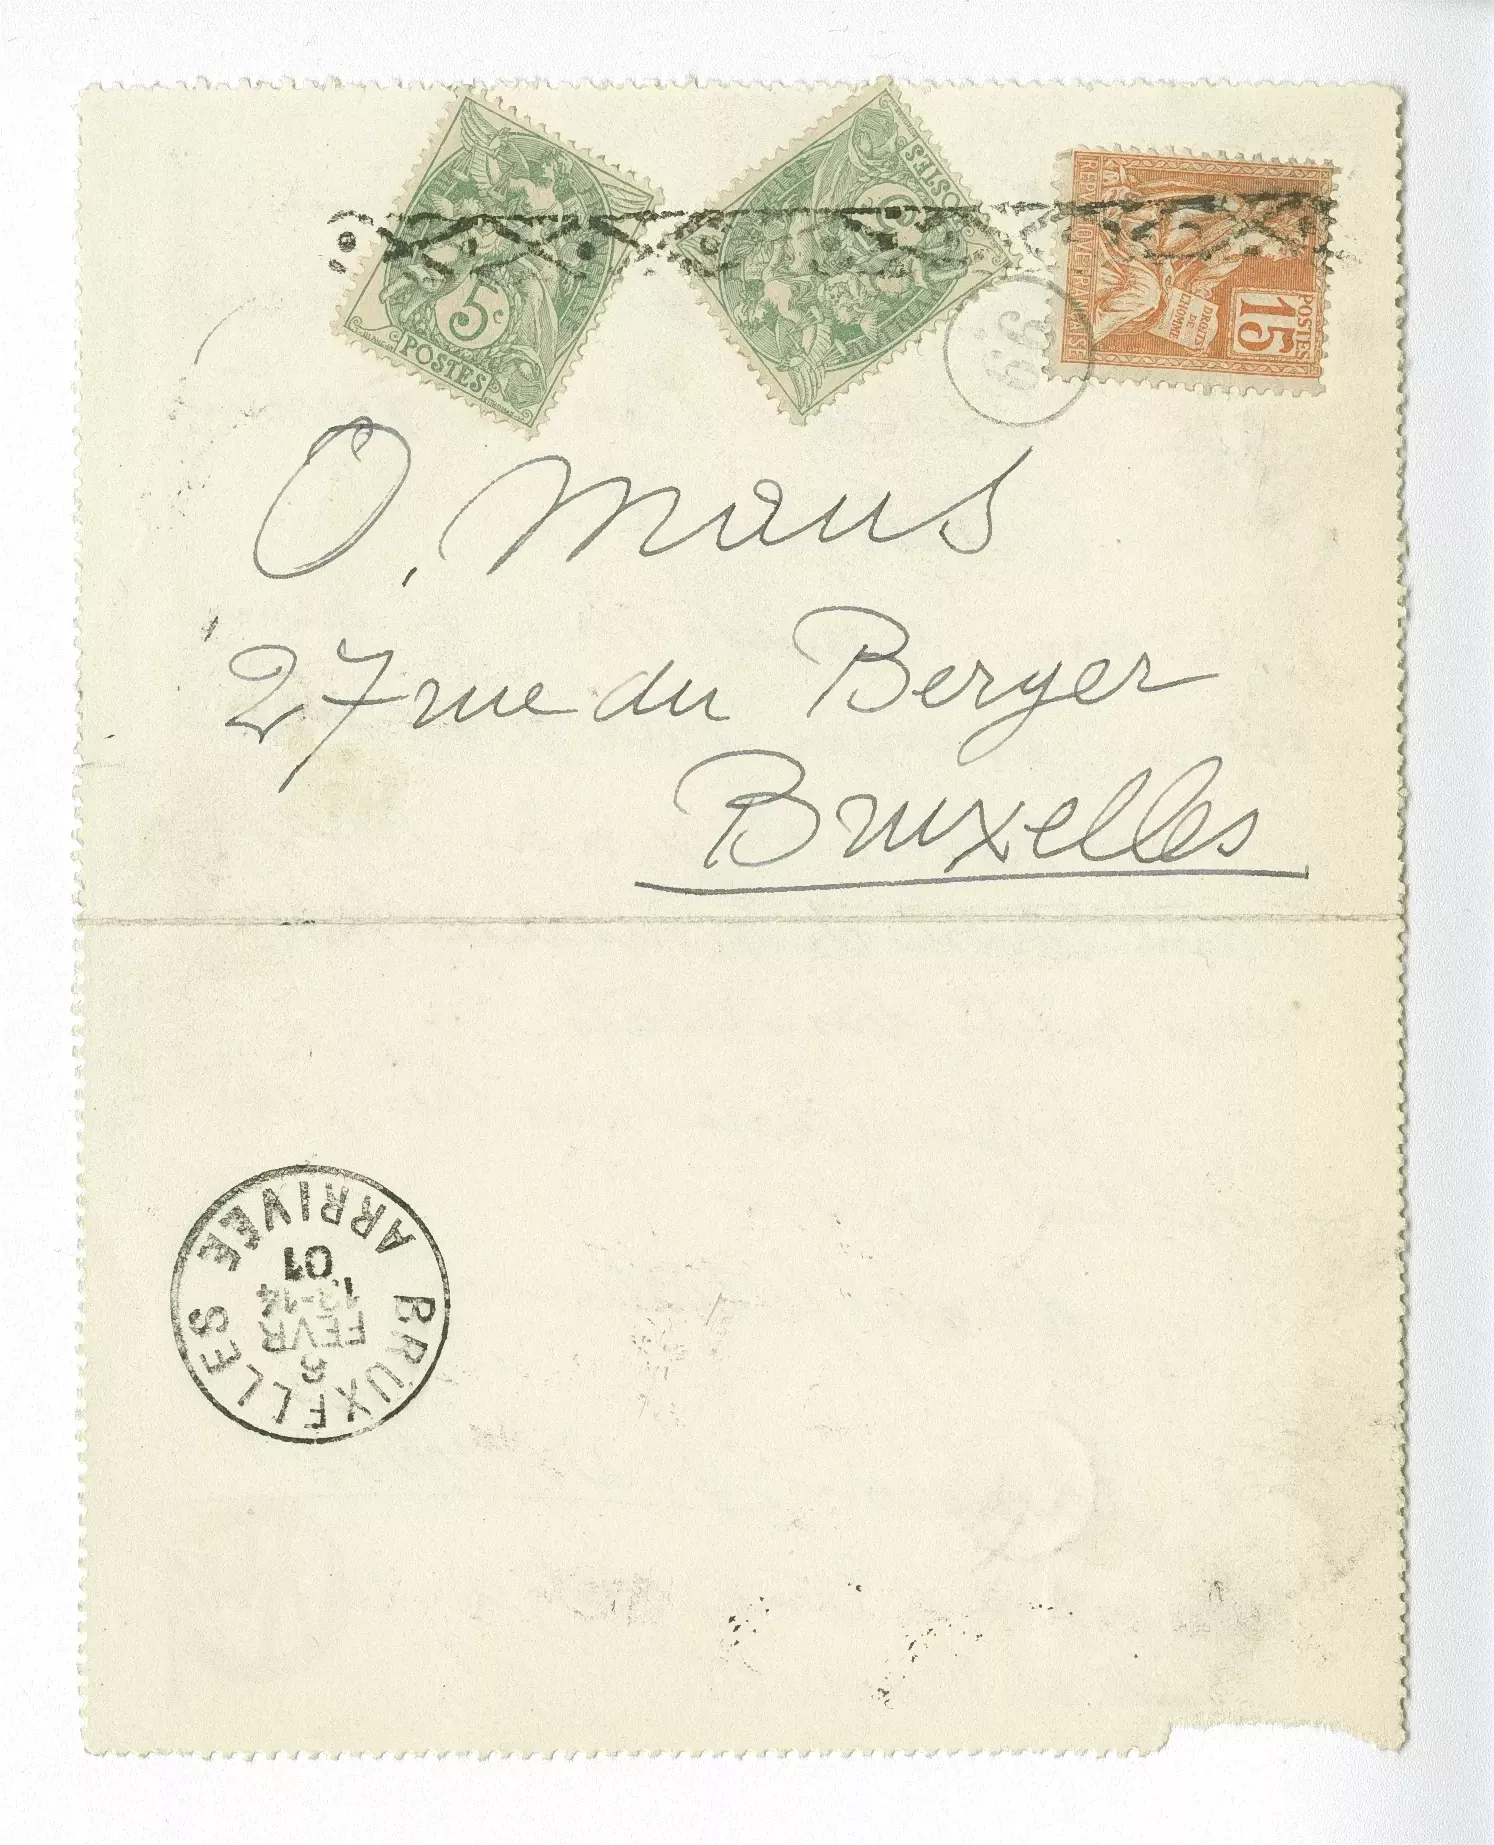 5c
POSTES
POSTES
REPUBLIQUE FRANÇAISE
DROITS
DE
L'HOMME
15
POSTES
99
O, Maus
27 rue du Berger
Bruxelles
BRUXELLES
FEVR
13-14
01
ARRIVÉE